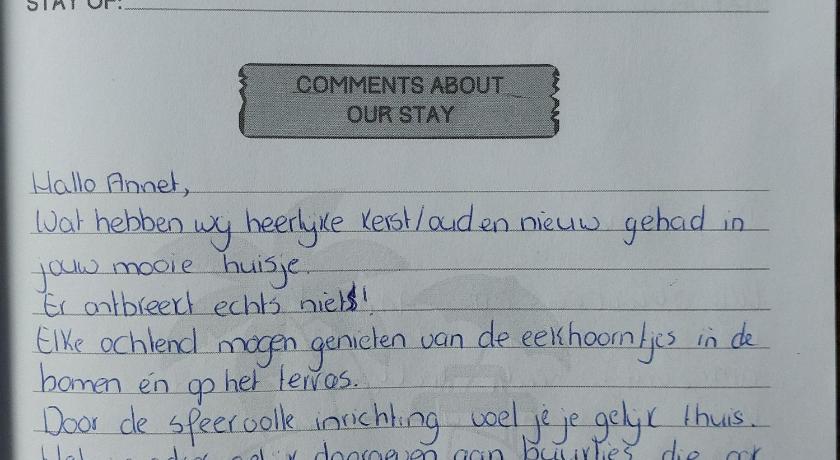 STAY OF:
COMMENTS ABOUT
OUR STAY
Hallo Annet,
Wat hebben wy heerlyke kerst/oud en nieuw gehad in
jouw mooie huisje.
Er ontbreekt echts niets!
Elke ochtend mogen genieten van de eekhoorntjes in de
bomen én op het terras.
Door de sfeervolle inrichting voel je je gelyk thuis.
doorgeven aan buurtjes die